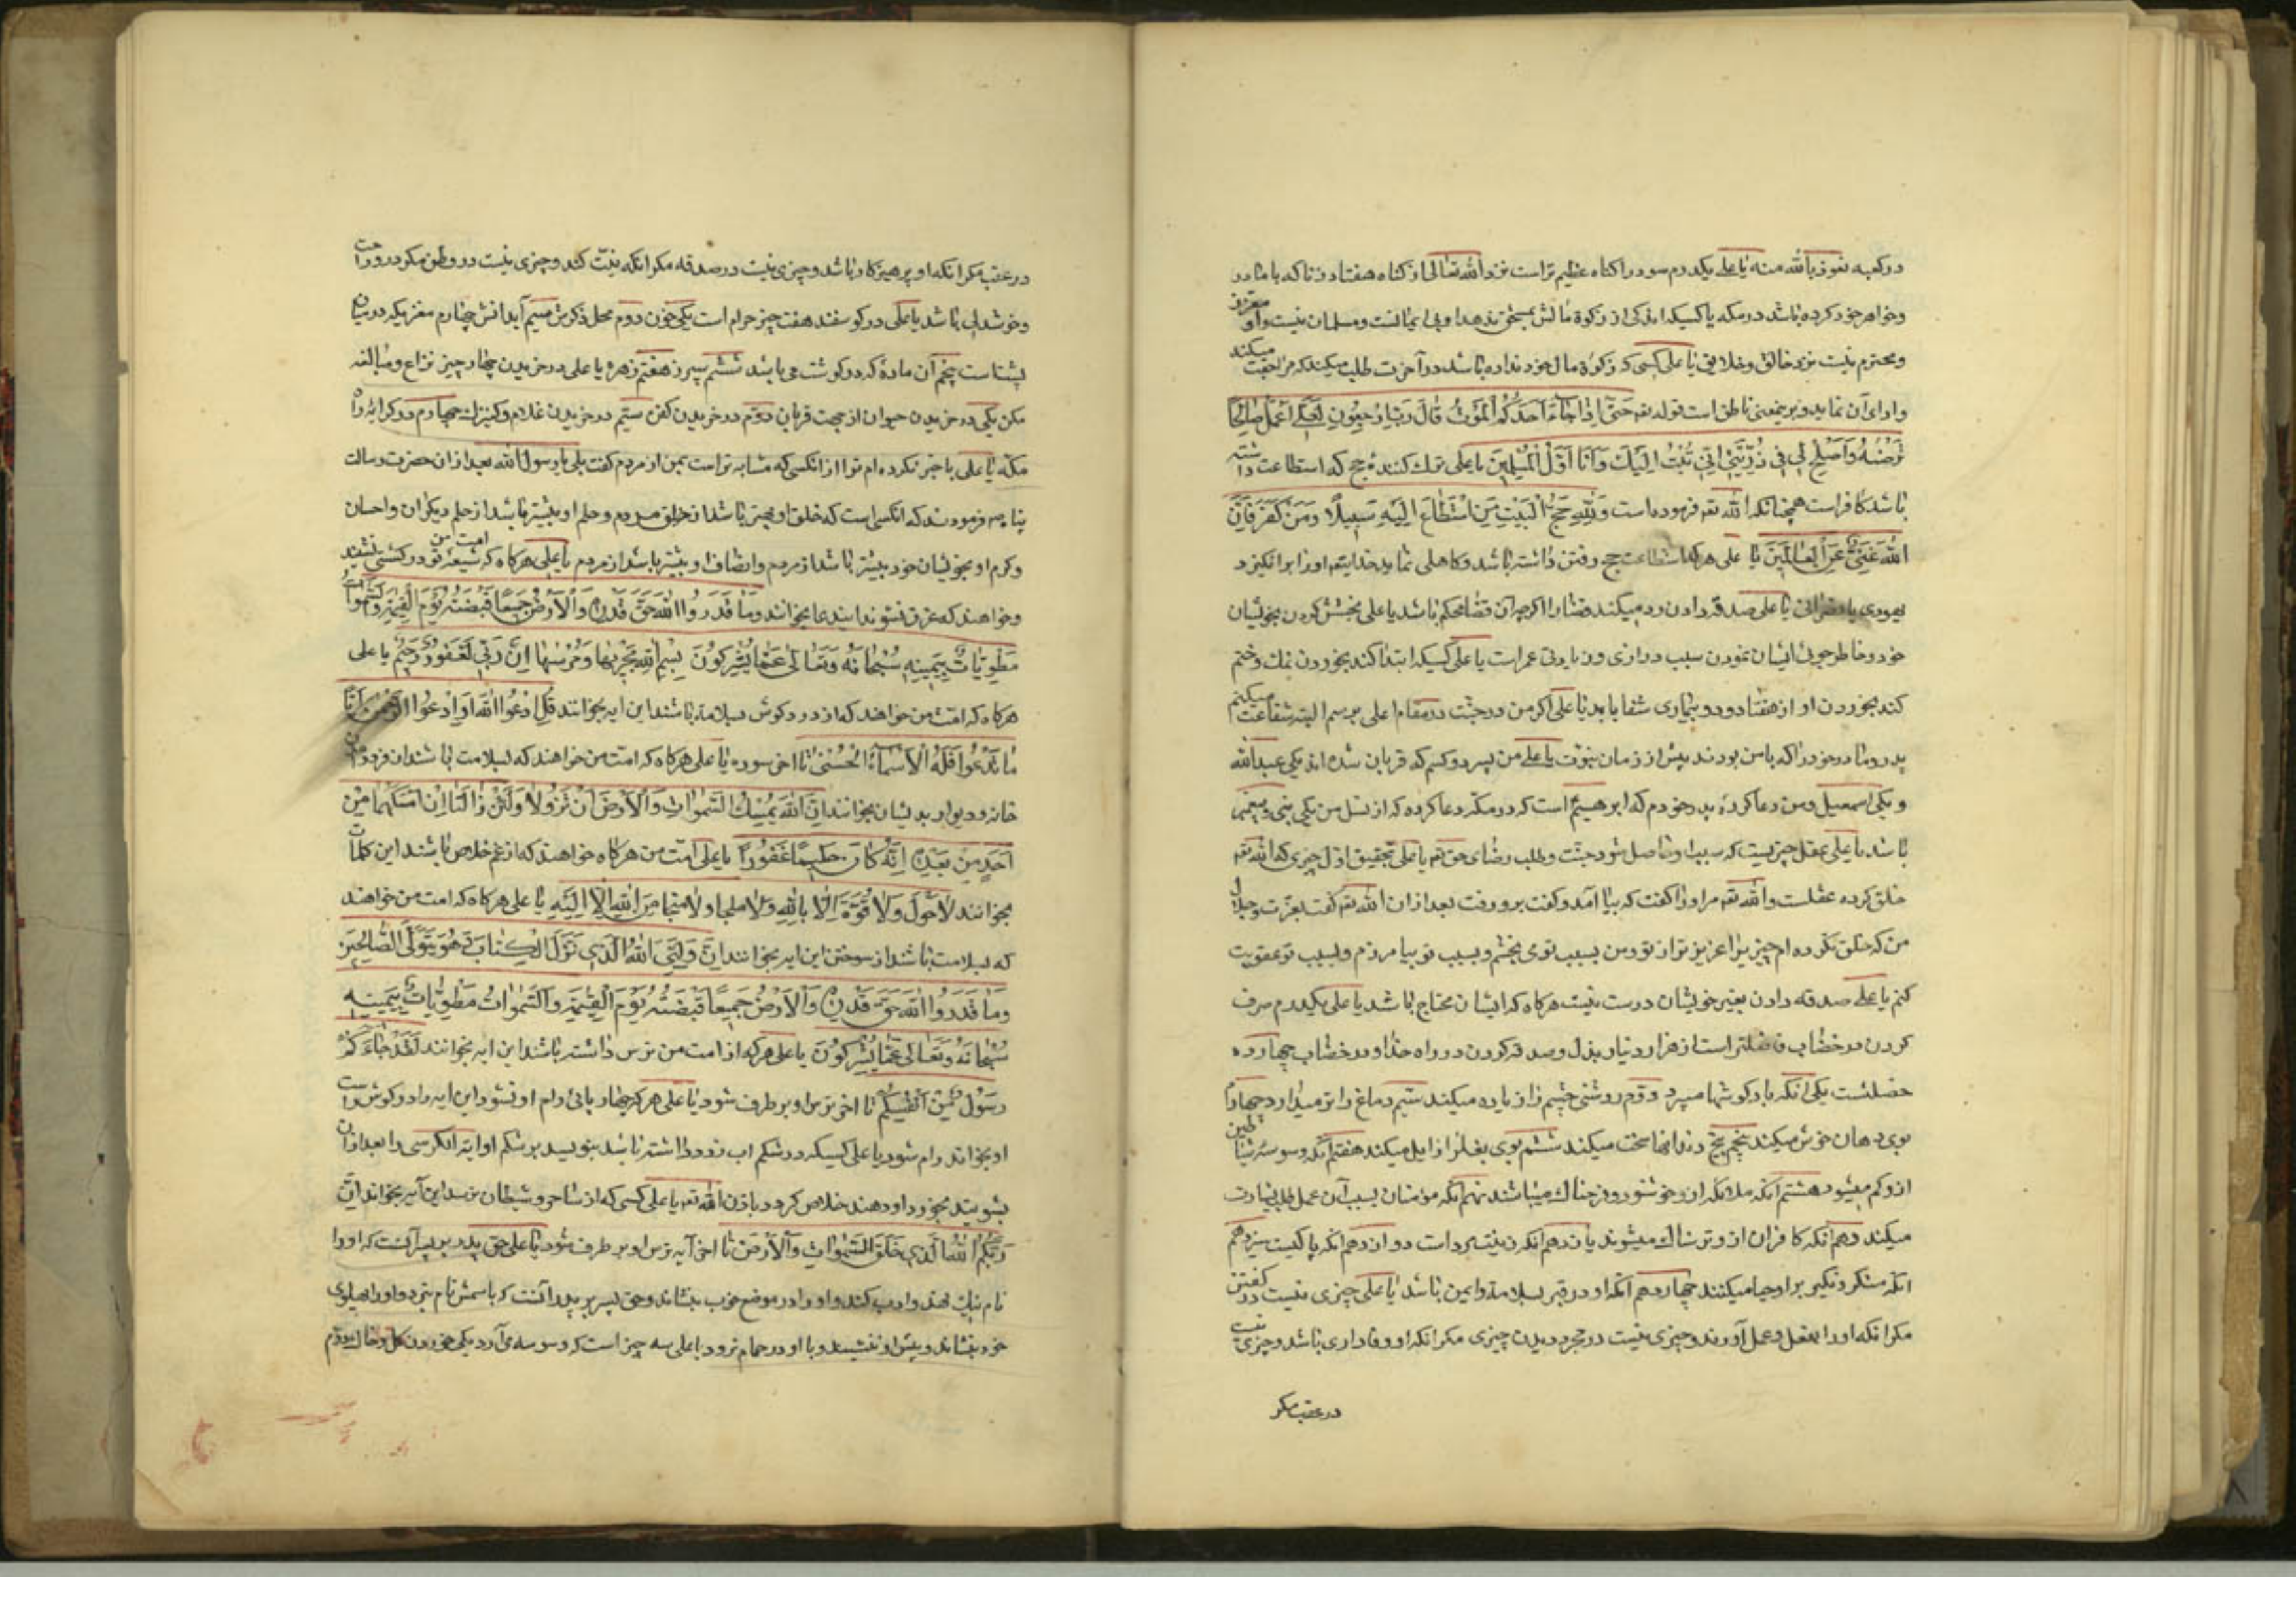 در کعبه نعوذ بالله منه یا علی یکدرم سود را کناه عظیم تر است نزد الله تعالی از کناه هفتاد زنا که با مادر
و خواهر خود کرده باشد در مکه یا علی کسیکه اندکی از زکوة مالش بمستحق ندهد او بی ایمانست و مسلمان نیست و او معزز
و محترم نیست نزد خالق و خلایق یا علی کسی که زکوة مال خود نداده باشد در آخرت طلب میکند که مراجعت میکند
و ادای آن نماید و بر یمعنی ناطق است قوله تعه حَتّیٰ اِذٰا جٰاءَ اَحَدَکُمُ الْمَوْتُ قٰالَ رَبِّ ارْجِعُونِ لَعَلّی اَعْمَلُ صٰالِحًا
تَرْضٰیهُ وَاَصْلِحْ لی فی ذُرِّیَّتی اِنّی تُبْتُ اِلَیْکَ وَ اَنَا اَوَّلُ الْمُسْلِمینَ یا علی ترک کنندهٔ حج که استطاعت داشته
باشد کافر است همچنانکه الله تعه فرموده است وَلِلّٰهِ حَجُّ الْبَیْتِ مَنِ اسْتَطٰاعَ اِلَیْهِ سَبیلًا وَمَنْ کَفَرَ فَاِنَّ
اللّٰهَ غَنِیٌّ عَنِ الْعٰالَمینَ یا علی هرکه استطاعت حج رفتن داشته باشد و کاهلی نماید خدایتعه او را برانکیزد
یهودی یا نصرانی یا علی صدقه دادن رد میکند قضا را اکرچه آن قضا محکم باشد یا علی بخشش کردن بخویشان
خود و خاطرجوئی ایشان نمودن سبب درازی و زیادتی عمر است یا علی کسیکه ابتدا کند بخوردن نمک و ختم
کند بخوردن او از هفتاد و دو بیماری شفا یابد یا علی اکر من در جنّت در مقام اعلی برسم البته شفاعت میکنم
پدر و مادر خود را که با من بودند پیش از زمان نبوّت یا علی من پسر دو کسم که قربان شده اند یکی عبدالله
و یکی اسمعیل و من دعا کردهٔ پدر خودم که ابرهیم است که در مکه دعا کرده که از نسل من یکی بنی و پیغمبر
باشد یا علی عقل چیزیست که سبب او حاصل شود جنّت و طلب رضای حق تعه یا علی بتحقیق اوّل چیزی که الله تعه
خلق کرده عقلست و الله تعه مر او را کفت که بیا آمد و کفت برو رفت بعد از ان الله تعه کفت بعزّت و جلال
من که خلق نکرده ام چیزیرا عزیزتر از تو و من بسبب تو می بخشم و بسبب تو بیامرزم و بسبب تو عقوبت
کنم یا علی صدقه دادن بغیر خویشان درست نیست هرکاه که ایشان محتاج باشد یا علی یکدرم صرف
کردن در خضاب فاضلتر است از هزار دینار بذل و صدقه کردن در راه خدا و در خضاب چهارده
خصلتست یکی انکه باد کوشها میبرد دوّم روشنی چشم را زیاده میکند سیّم دماغ را تر میدارد چهارم
بوی دهان خوش میکند پنجم بیخ دندانها سخت میکند ششم بوی بغلرا زایل میکند هفتم آنکه وسوسهٔ شیاطین
از و کم میشود هشتم آنکه ملائکه از و خوشنود و فرحناک میباشند نهم آنکه مؤمنان بسبب آن عمل طلب بشارت
میکند دهم آنکه کافران از و ترسناک میشوند یازدهم آنکه زینت مرد است دوازدهم آنکه پاکیست سیزدهم
آنکه منکر و نکیر بر او حیا میکنند چهاردهم آنکه او در قبر بسلامت و ایمن باشد یا علی چیزی نیست در کفتن
مکر انکه او را بفعل و عمل آورند و چیزی نیست در مجرد دیدن چیزی مکر انکه او وفاداری باشد و چیزی نیست
در عقب مکر
در عقب مکر انکه او پرهیزکار باشد و چیزی نیست در صدقه مکر انکه نیّت کند و چیزی نیست در وطن مکر در و راحت
و خوشدل باشد یا علی در کوسفند هفت چیز حرام است یکی خون دوم محل ذکرش سیم آبدانش چهارم مغزیکه در میان
پشتاست پنجم آن مادهٔ که در کوشت می باشد ششم سپرز هفتم زهره یا علی در خریدن چهار چیز نزاع و مبالغه
مکن یکی در خریدن حیوان از جهت قربان دوّم در خریدن کفن سیّم در خریدن غلام و کنیزک چهارم در کرایهٔ راه
مکه یا علی با خبر نکرده ام ترا از انکسی که مشابه تر است بمن از مردم کفت بلی یا رسول الله بعد از ان حضرت رسالت
پناه ص فرمودند که انکسی است که خلق او بهتر باشد از خلق مردم و حلم او بیشتر باشد از حلم دیکران و احسان
و کرم او بخویشان خود بیشتر باشد از مردم و انصاف او بیشتر باشد از مردم یا علی هرکاه که شیعهٔ تو امت من در کشتی نشینند
و خواهند که غرق نشوند ایندعا بخوانند وَمٰا قَدَرُوا اللّٰهَ حَقَّ قَدْرِهِ وَالْاَرْضُ جَمیعًا قَبْضَتُهُ یَوْمَ الْقِیٰمَةِ وَالسَّمٰوٰاتُ
مَطْوِیّٰاتٌ بِیَمینِهِ سُبْحٰانَهُ وَتَعٰالیٰ عَمّٰا یُشْرِکُونَ بِسْمِ اللّٰهِ مَجْریٰهٰا وَمُرْسٰیهٰا اِنَّ رَبّی لَغَفُورٌ رَحیمٌ یا علی
هرکاه که امّت من خواهند که از درد کوش بسلامت باشند این ایه بخوانند قُلِ ادْعُوا اللّٰهَ اَوِ ادْعُوا الرَّحْمٰنَ اَیًّا
مٰا تَدْعُوا فَلَهُ الْاَسْمٰاءُ الْحُسْنیٰ تا اخر سوره یا علی هرکاه که امّت من خواهند که بسلامت باشند از فرود آمدن
خانه و دیوار بدیشان بخوانند اِنَّ اللّٰهَ یُمْسِکُ السَّمٰوٰاتِ وَالْاَرْضَ اَنْ تَزُولٰا وَلَئِنْ زٰالَتٰا اِنْ اَمْسَکَهُمٰا مِنْ
اَحَدٍ مِنْ بَعْدِهِ اِنَّهُ کٰانَ حَلیمًا غَفُورًا یا علی امّت من هرکاه خواهند که از غم خلاص باشند این کلمات
بخوانند لٰا حَوْلَ وَلٰا قُوَّةَ اِلّٰا بِاللّٰهِ وَلٰا مَلْجَا وَلٰا مَنْجٰا مِنَ اللّٰهِ اِلّٰا اِلَیْهِ یا علی هرکاه که امت من خواهند
که بسلامت باشند از سوختن این ایه بخوانند اِنَّ وَلِیِّیَ اللّٰهُ الَّذی نَزَّلَ الْکِتٰابَ وَهُوَ یَتَوَلَّی الصّٰالِحینَ
وَمٰا قَدَرُوا اللّٰهَ حَقَّ قَدْرِهِ وَالْاَرْضُ جَمیعًا قَبْضَتُهُ یَوْمَ الْقِیٰمَةِ وَالسَّمٰوٰاتُ مَطْوِیّٰاتٌ بِیَمینِهِ
سُبْحٰانَهُ وَتَعٰالیٰ عَمّٰا یُشْرِکُونَ یا علی هرکه از امت من ترس داشته باشند این ایه بخوانند لَقَدْ جٰاءَکُمْ
رَسُولٌ مِنْ اَنْفُسِکُمْ تا اخر ترس او بر طرف شود یا علی هرکه چهارپائی رام او نشود این ایه را در کوش راست
او بخواند رام شود یا علی کسیکه در شکم اب زرد داشته باشد بنویسد بر شکم او ایة الکرسی را بعد از ان
بشویند بخورد او دهند خلاص کردد باذن الله تعه یا علی کسی که از ساحر و شیطان بترسد این آیه بخواند اِنَّ
رَبَّکُمُ اللّٰهُ الَّذی خَلَقَ السَّمٰوٰاتِ وَالْاَرْضَ تا اخر آیه ترس او بر طرف شود یا علی حق پدر بر پسر آنست که او را
نام نیک نهد و ادب کند و او را در موضع خوب بنشاند و حق پسر بر پدر آنست که باسمش نام نبرد و او را بپهلوی
خود بنشاند و پیش او ننشیند و با او در حمام نرود یا علی سه چیز است که وسوسه می آرد یکی خوردن کل و خاک دوّم